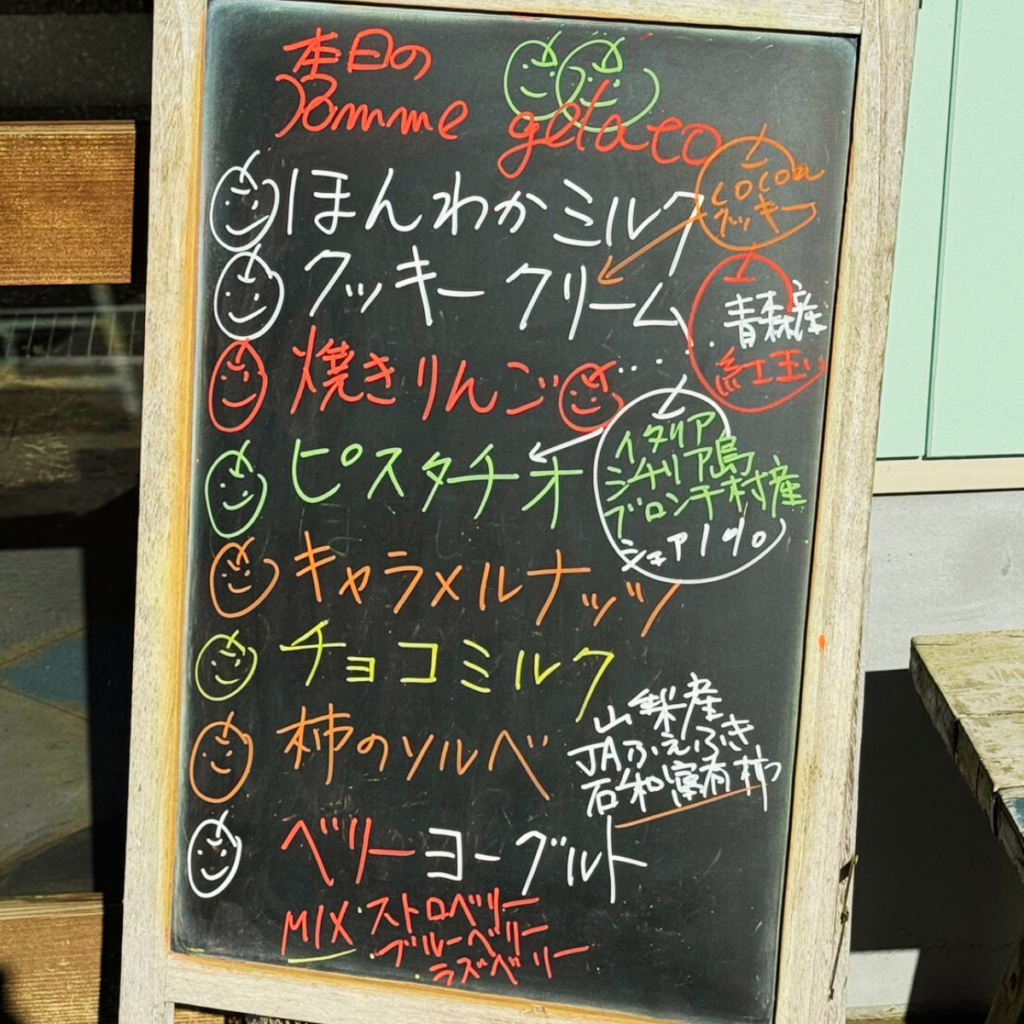 本日の
Pomme gelato
ほんわかミルク
cocoa
クッキー
クッキークリーム
青森産
紅玉
焼きりんご
ピスタチオ
イタリア
シチリア島
ブロンテ村産
シェア1%
キャラメルナッツ
チョコミルク
柿のソルベ
山梨産
JAふえふき
石和富有柿
ベリーヨーグルト
MIX・ストロベリー
・ブルーベリー
・ラズベリー